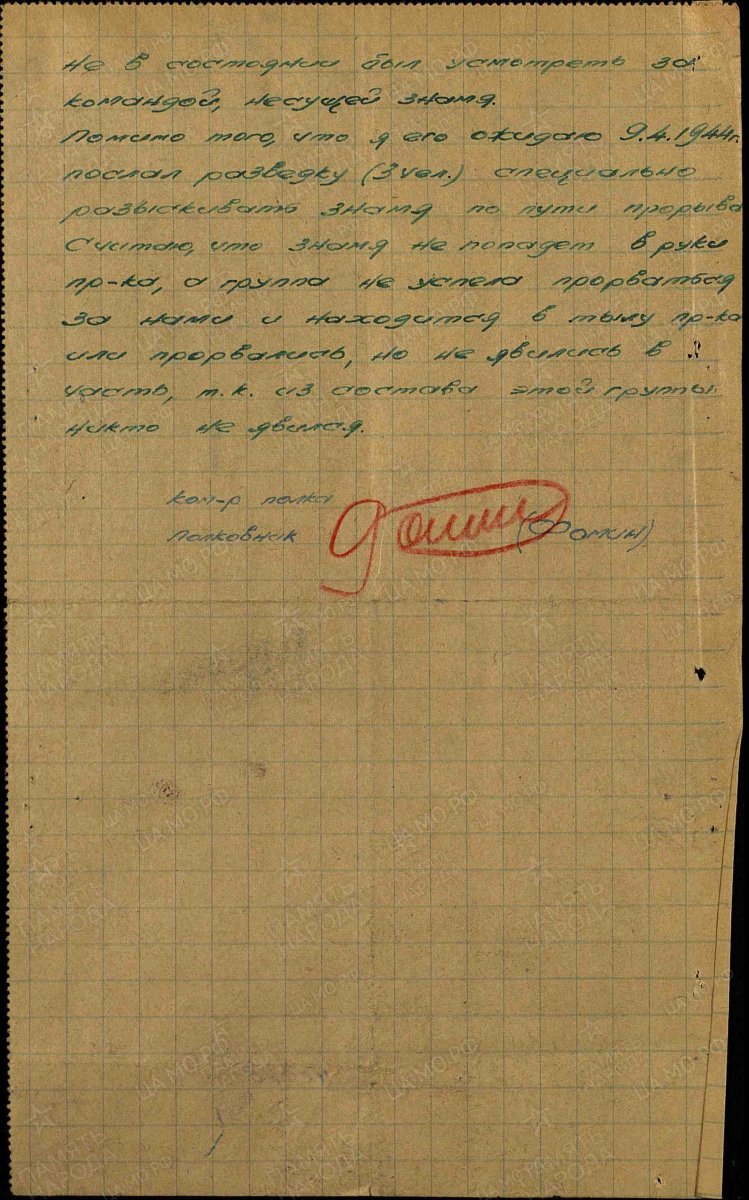 не в состоянии был усмотреть за
командой, несущей знамя.
Помимо того, что я его ожидаю 9.4.1944г.
послал разведку (3 чел.) специально
разыскивать знамя по пути прорыва
Считаю, что знамя не попадет в руки
пр-ка, а группа не успела прорваться
за нами и находится в тылу пр-ка
или прорвались, но не явились в
часть, т.к. из состава этой группы
никто не явился.
Ком-р полка
Полковник Фомин (Фомин)
ПАМЯТЬ НАРОДА
ЦАМО.РФ